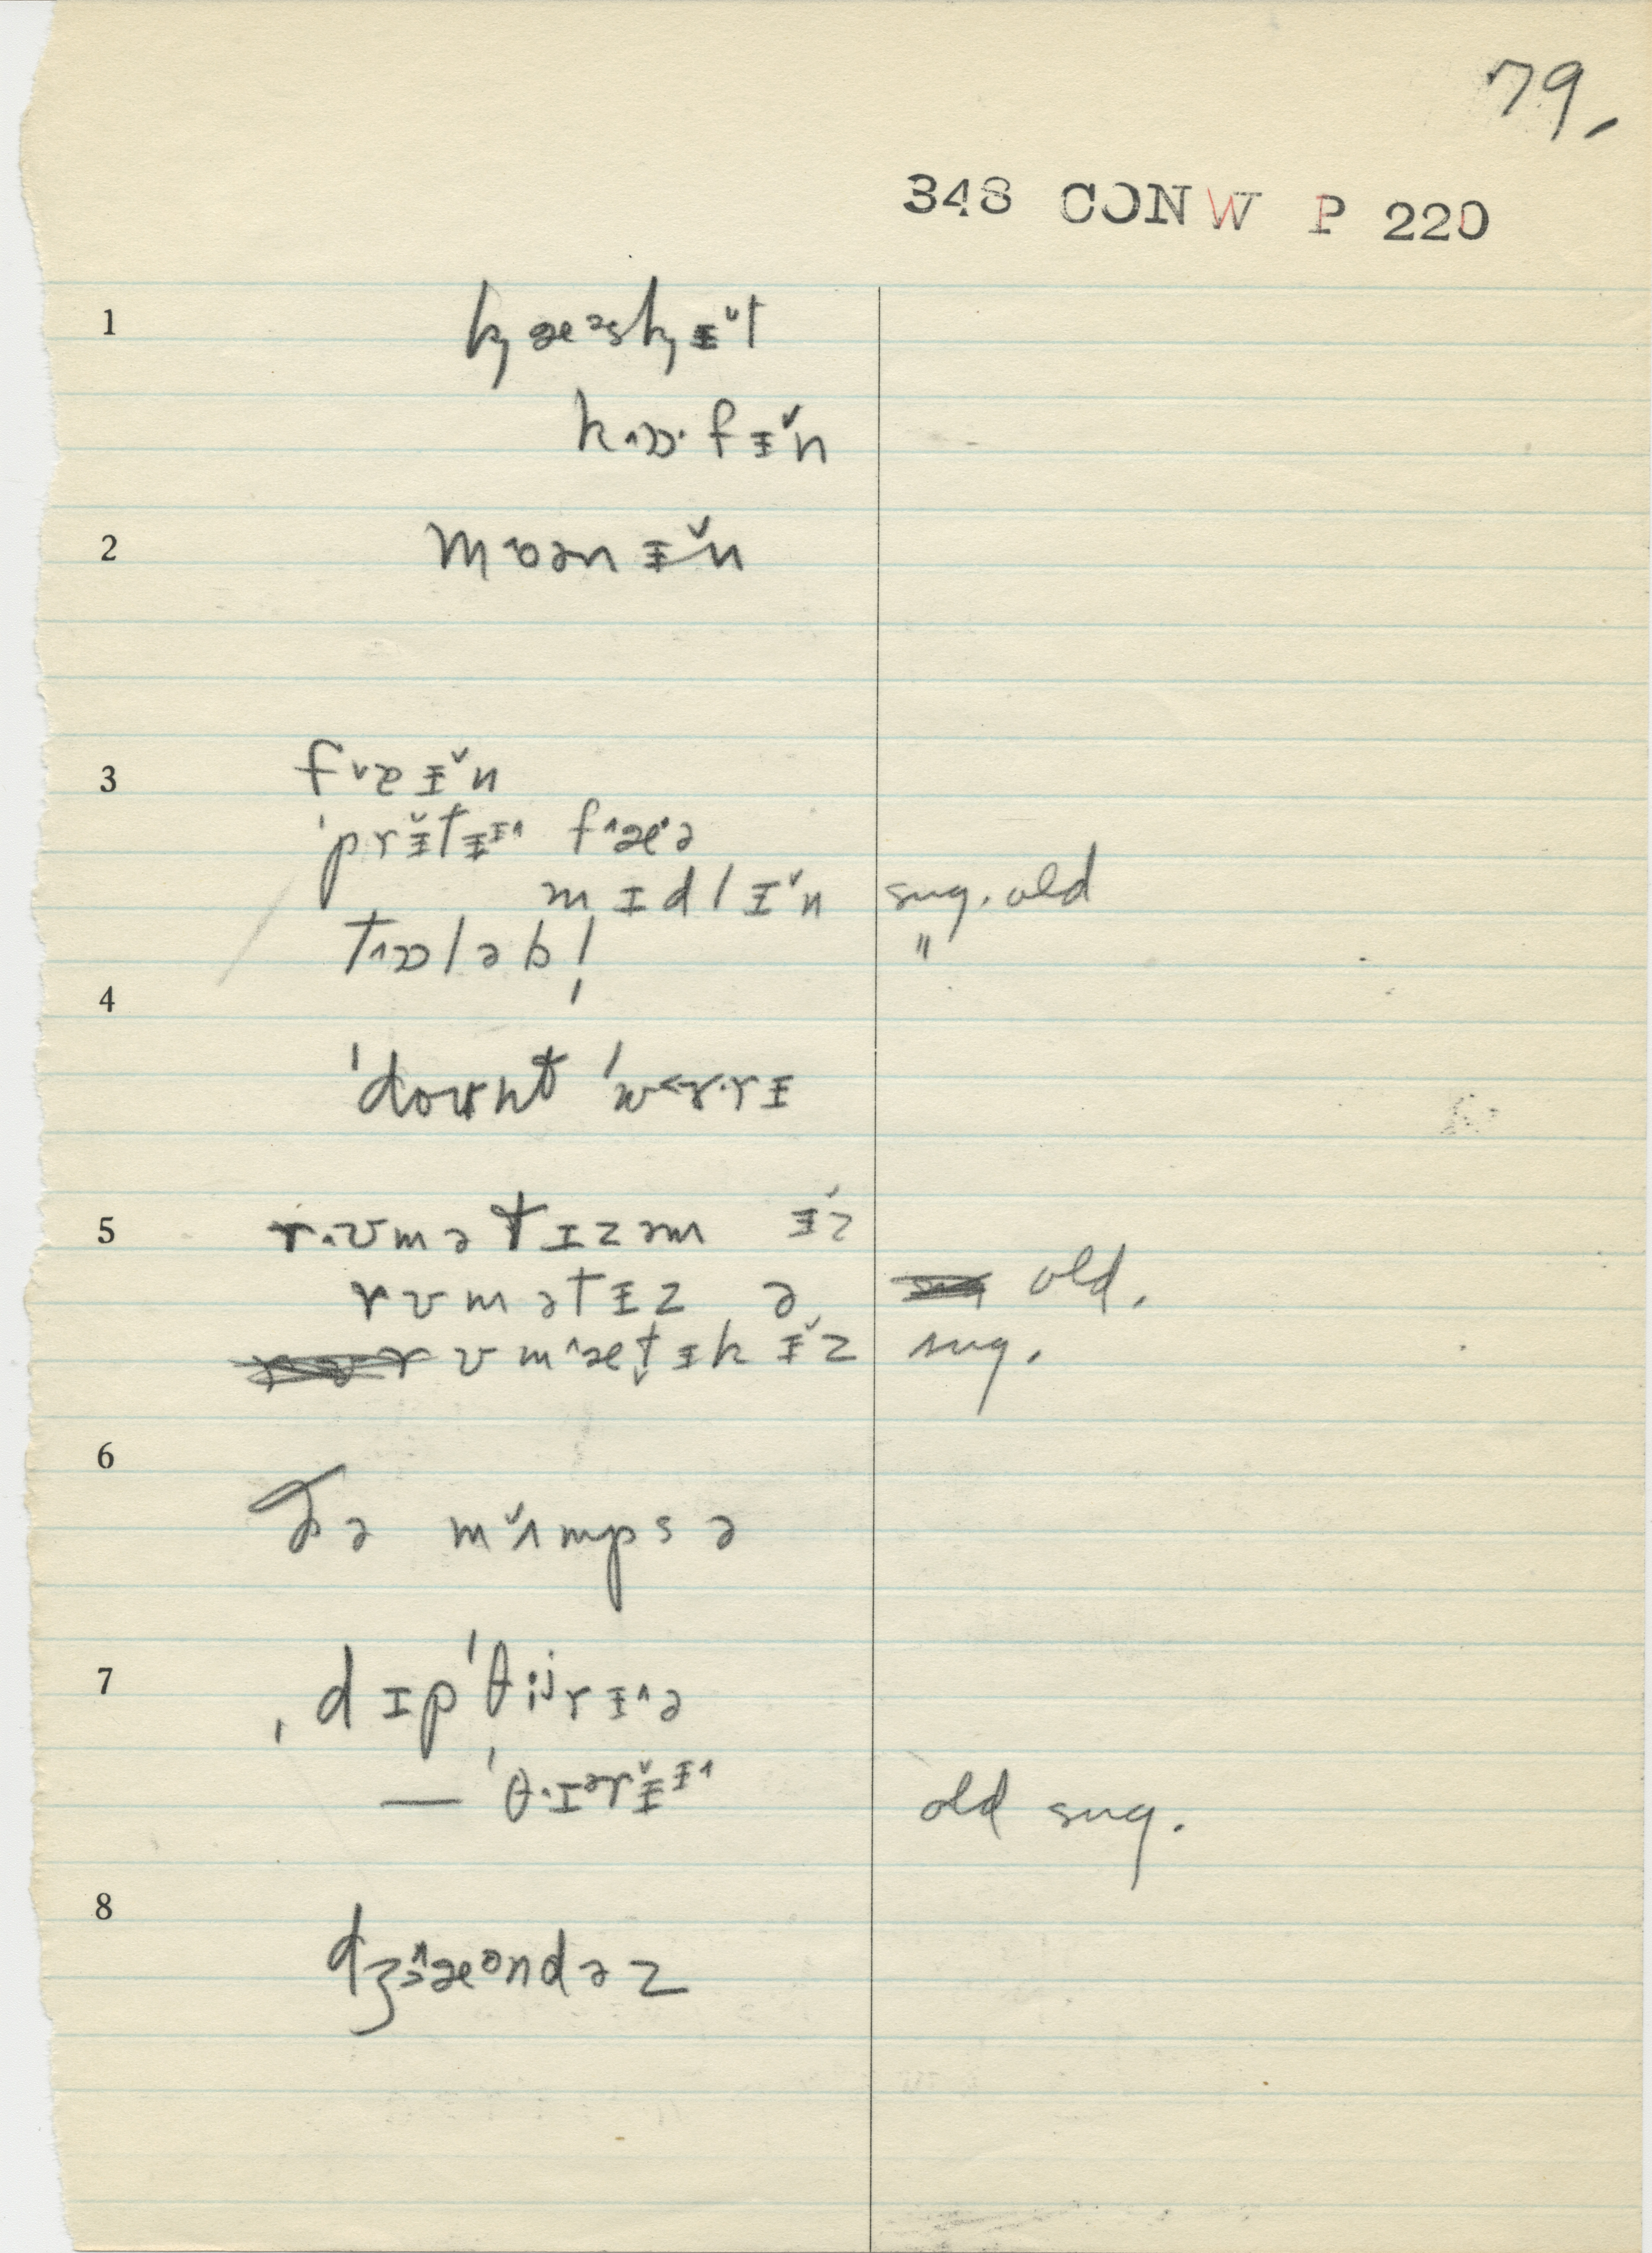 79.
348 CONW P 220
1
k̹æᵊsk̹ɪ̵̌t
kɒ·fɪ̵̌n
2
mʊənɪ̵̌n
3
fɛɪ̵̌n
ˈprɪ̵̌tɪ̵ fæə
mɪdlɪ̵̌n sug. old
tɒləbl̩ "
4
ˈdoʊnt ˈwɜ·rɪ̵
5
rʊmətɪzəm ɪ̵̌z
rʊmətɪ̵z ə old.
rʊmætɪ̵k ɪ̵̌z sug.
6
ðə mʌ̌mps ə
7
ˌdɪpˈθijrɪ̵ə
— ˈθɪᵊrɪ̵̌ old sug.
8
dʒæəndəz